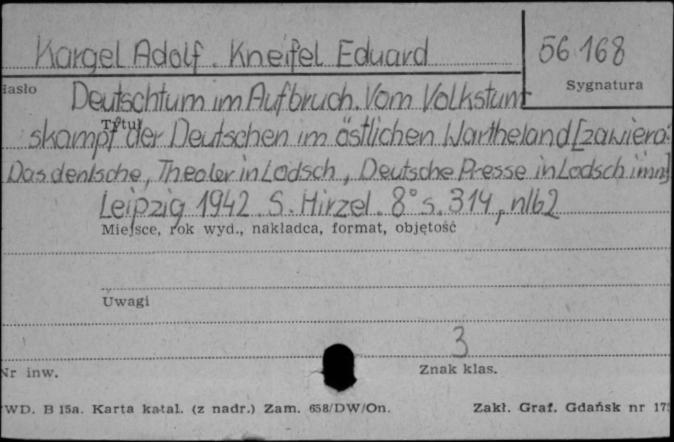 Kargel Adolf. Kneifel Eduard
56168
Hasło
Sygnatura
Deutschtum im Aufbruch. Vom Volkstum
Tytuł
skampf der Deutschen im östlichen Wartheland [zawiera:
Das dentsche, Theater in Lodsch, Deutsche Presse in Lodsch i inn]
Leipzig 1942. S. Hirzel. 8° s. 314, nlb2
Miejsce, rok wyd., nakładca, format, objętość
Uwagi
3
Nr inw.
Znak klas.
WD. B 15a. Karta katal. (z nadr.) Zam. 658/DW/On.
Zakł. Graf. Gdańsk nr 17